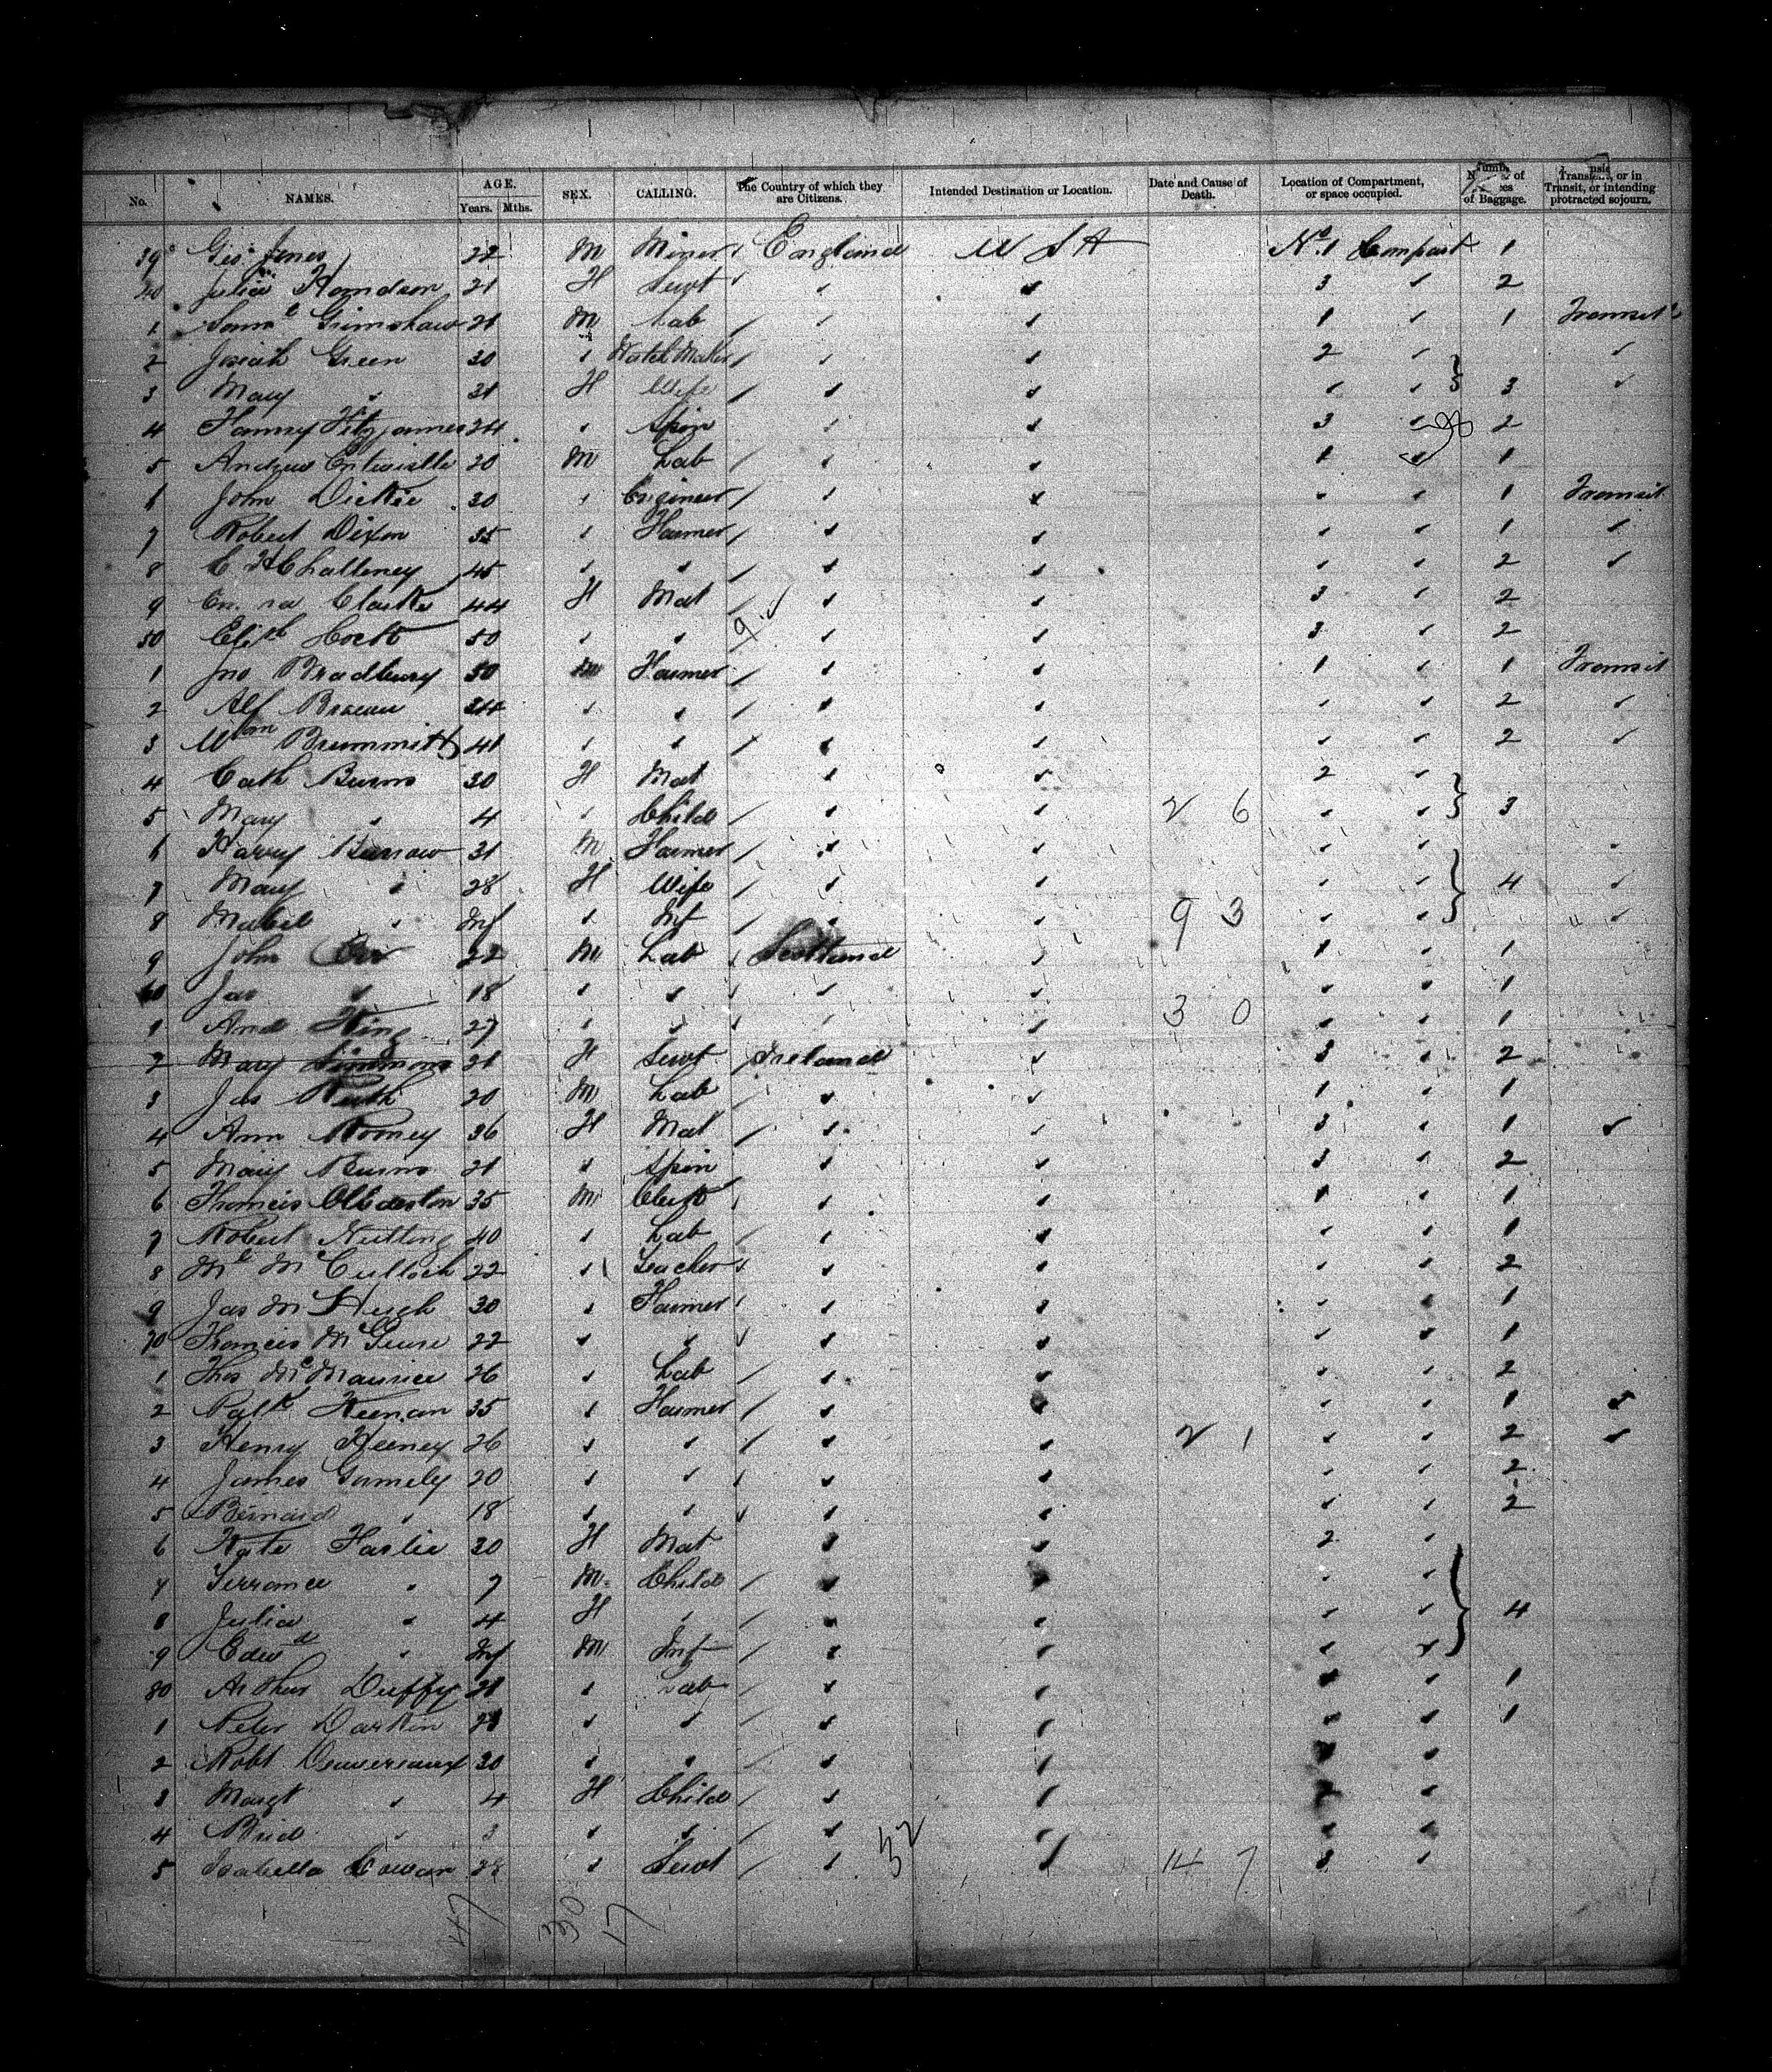 No. NAMES. AGE. Years. Mths. SEX. CALLING. The Country of which they are Citizens. Intended Destination or Location. Date and Cause of Death. Location of Compartment, or space occupied. of Baggage. Transit, or intending protracted sojourn.
39 Geo Jones 22 M Miner England U S A No 1 Compart 1
40 Julia 21 F Servt ✓ ✓ 3 ✓ 2
1 Saml Grimshaw 21 M Lab ✓ ✓ 1 ✓ 1 Transit
2 Josiah Green 30 ✓ Watch Maker ✓ ✓ 2 ✓ ✓
3 Mary ✓ 31 F Wife ✓ ✓ ✓ ✓ 3 ✓
4 Fanny Fitzjames 24 ✓ Spin ✓ ✓ 3 ✓ 2
5 Andrew Entwistle 20 M Lab ✓ ✓ 1 ✓ 1
6 John Dickie 30 ✓ Engineer ✓ ✓ ✓ ✓ 1 Transit
7 Robert Dixon 35 ✓ Farmer ✓ ✓ ✓ ✓ 1 ✓
8 C H Challeney 45 ✓ ✓ ✓ ✓ ✓ ✓ 2 ✓
9 Clarke 44 F Mat ✓ ✓ 3 ✓ 2
50 Elizh 50 ✓ ✓ ✓ ✓ 3 ✓ 2
1 Jno Bradbury 50 M Farmer ✓ ✓ 1 ✓ 1 Transit
2 Alf 34 ✓ ✓ ✓ ✓ ✓ ✓ 2 ✓
3 Wm Brummitt 41 ✓ ✓ ✓ ✓ ✓ ✓ 2 ✓
4 Cath Burns 30 F Mat ✓ ✓ 2 ✓
5 Mary ✓ 4 ✓ Child ✓ ✓ 2 6 ✓ ✓ 3
6 Harry Barrow 31 M Farmer ✓ ✓ ✓ ✓ ✓
7 Mary ✓ 28 F Wife ✓ ✓ ✓ ✓ 4 ✓
8 Mabel ✓ Inf ✓ Inf ✓ ✓ 9 3 ✓ ✓ ✓
9 John Orr 22 M Lab Scotland ✓ 1 ✓ 1
60 Jas ✓ 18 ✓ ✓ ✓ ✓ ✓ ✓ 1
1 And King 27 ✓ ✓ ✓ ✓ 3 0 ✓ ✓ 1
2 Mary Simmons 21 F Servt Ireland ✓ 3 ✓ 2
3 Jas 20 M Lab ✓ ✓ 1 ✓ 1
4 Ann Rooney 36 F Mat ✓ ✓ 3 ✓ 1 ✓
5 Mary Burns 21 ✓ Spin ✓ ✓ 3 ✓ 2
6 Thomas 35 M ✓ ✓ 1 ✓ 1
7 Robert Nutting 40 ✓ Lab ✓ ✓ ✓ ✓ 1
8 McCulloch 22 ✓ Teacher ✓ ✓ ✓ ✓ 2
9 Jas McHugh 30 ✓ Farmer ✓ ✓ ✓ ✓ 1
70 Thomas 22 ✓ ✓ ✓ ✓ ✓ ✓ 1
1 Thos McMaurice 26 ✓ Lab ✓ ✓ ✓ ✓ 2
2 Patk Keenan 35 ✓ Farmer ✓ ✓ ✓ ✓ 1 ✓
3 Henry Keeney 26 ✓ ✓ ✓ ✓ 2 1 ✓ ✓ 2 ✓
4 James 20 ✓ ✓ ✓ ✓ ✓ ✓ 2
5 Bernard ✓ 18 ✓ ✓ ✓ ✓ ✓ ✓ 2
6 Kate 30 F Mat ✓ ✓ 2 ✓
7 Terrance ✓ 7 M Child ✓ ✓ ✓ ✓
8 Julia ✓ 4 F ✓ ✓ ✓ ✓ ✓ 4
9 Edwd ✓ Inf M Inf ✓ ✓ ✓ ✓
80 Arthur Duffy 21 ✓ Lab ✓ ✓ ✓ 1
1 Peter Darkin ✓ ✓ ✓ ✓ ✓ ✓ 1
2 Robt 30 ✓ ✓ ✓ ✓ ✓
3 Margt ✓ 4 F Child ✓ ✓ 2 ✓
4 Brid ✓ 3 ✓ ✓ ✓ ✓ ✓ ✓
5 Isabella Cowan ✓ Servt ✓ 32 ✓ 14 7 3 ✓
47 30 17